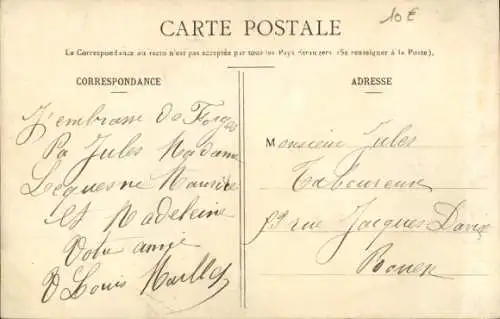 10 €
CARTE POSTALE
La Correspondance au recto n'est pas acceptée par tous les Pays étrangers (Se renseigner à la Poste).
CORRESPONDANCE
ADRESSE
J'embrasse de Forges
Pa Jules Madame
Lequesne Maurice
Et Madeleine
Votre ami
Louis Maillet
Monsieur Jules
Taboureux
rue Jacques
Rouen